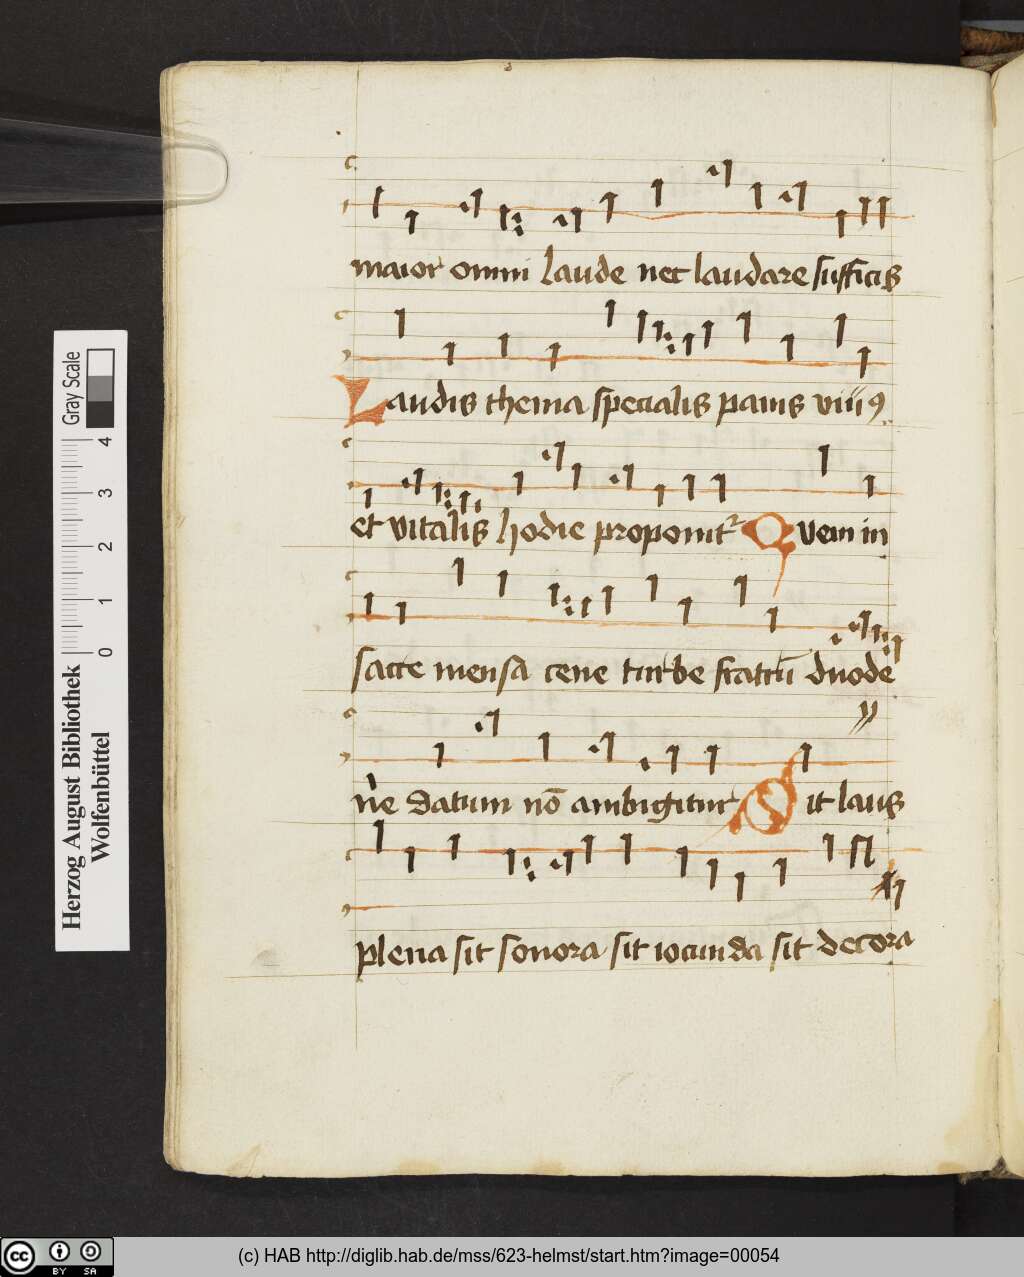 maior omni laude nec laudare sufficis
Laudis thema specialis panis viuꝯ
et vitalis hodie proponitᷣ Quem in
sacre mensa cene turbe fratrū duode
ne datum nō ambigitur Sit laus
plena sit sonora sit iocunda sit decora
Gray Scale
4
3
2
1
0
Herzog August Bibliothek
Wolfenbüttel
cc BY SA
(c) HAB http://diglib.hab.de/mss/623-helmst/start.htm?image=00054